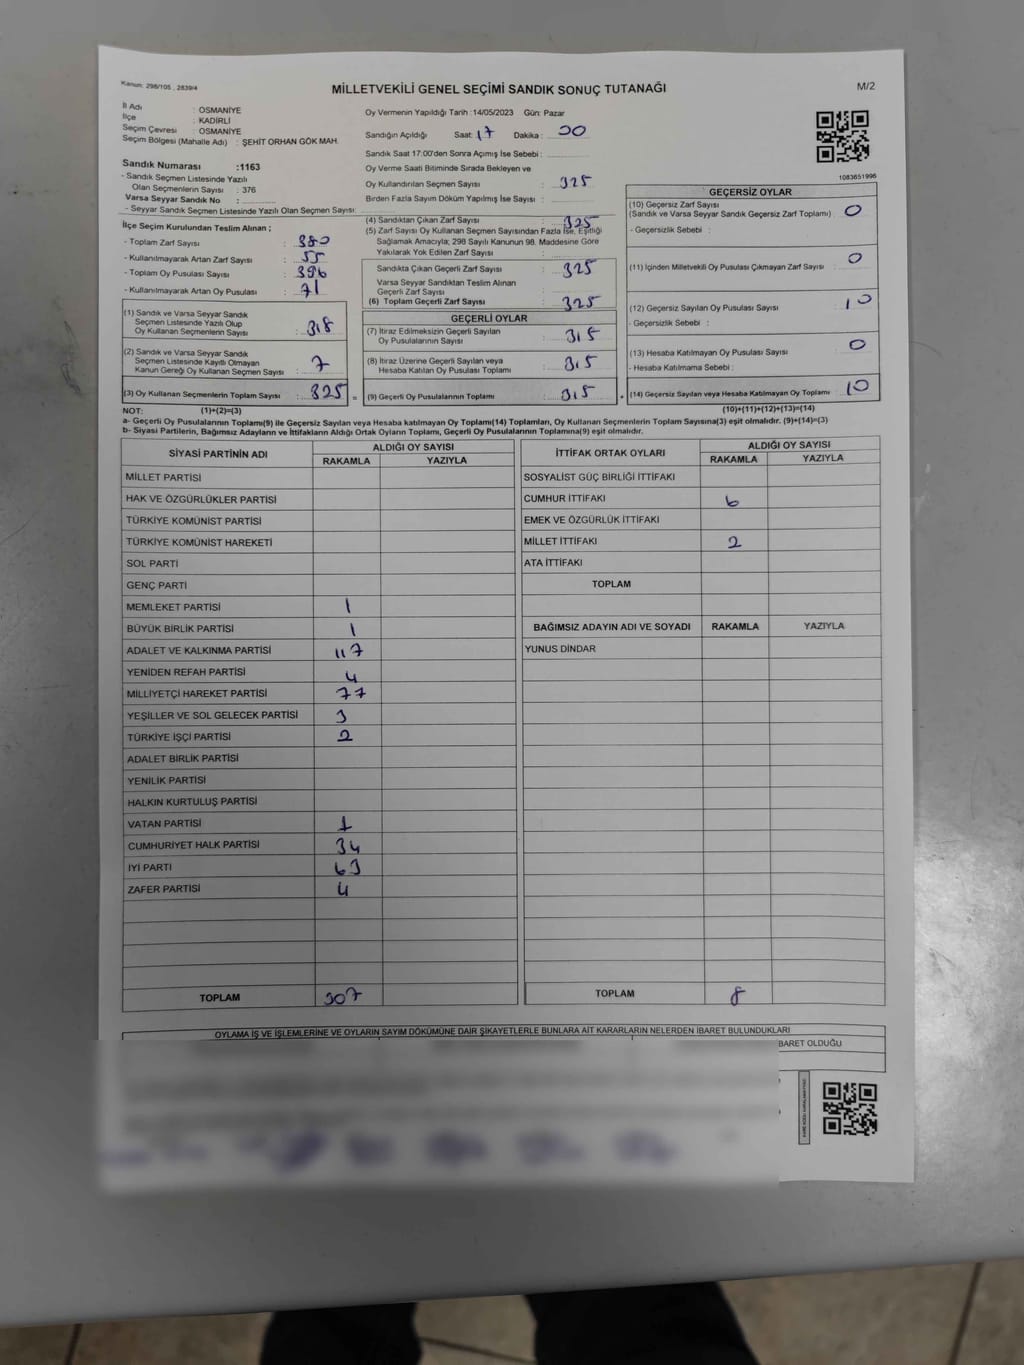 Kanun: 298/105 , 2839/4
MİLLETVEKİLİ GENEL SEÇİMİ SANDIK SONUÇ TUTANAĞI
M/2
İl Adı : OSMANİYE
İlçe : KADİRLİ
Seçim Çevresi : OSMANİYE
Seçim Bölgesi (Mahalle Adı) : ŞEHİT ORHAN GÖK MAH.
Sandık Numarası :1163
- Sandık Seçmen Listesinde Yazılı
Olan Seçmenlerin Sayısı : 376
Varsa Seyyar Sandık No :
- Seyyar Sandık Seçmen Listesinde Yazılı Olan Seçmen Sayısı:
Oy Vermenin Yapıldığı Tarih :14/05/2023 Gün: Pazar
Sandığın Açıldığı Saat: 17 Dakika : 00
Sandık Saat 17:00'den Sonra Açımış İse Sebebi :
Oy Verme Saati Bitiminde Sırada Bekleyen ve
Oy Kullandırılan Seçmen Sayısı : 325
Birden Fazla Sayım Döküm Yapılmış İse Sayısı :
1083651996
İlçe Seçim Kurulundan Teslim Alınan ;
- Toplam Zarf Sayısı : 380
- Kullanılmayarak Artan Zarf Sayısı : 55
- Toplam Oy Pusulası Sayısı : 396
- Kullanılmayarak Artan Oy Pusulası : 71
(1) Sandık ve Varsa Seyyar Sandık
Seçmen Listesinde Yazılı Olup
Oy Kullanan Seçmenlerin Sayısı : 318
(2) Sandık ve Varsa Seyyar Sandık
Seçmen Listesinde Kayıtlı Olmayan
Kanun Gereği Oy Kullanan Seçmen Sayısı : 7
(3) Oy Kullanan Seçmenlerin Toplam Sayısı : 325 =
(4) Sandıktan Çıkan Zarf Sayısı : 325
(5) Zarf Sayısı Oy Kullanan Seçmen Sayısından Fazla İse, Eşitliği
Sağlamak Amacıyla; 298 Sayılı Kanunun 98. Maddesine Göre
Yakılarak Yok Edilen Zarf Sayısı :
Sandıkta Çıkan Geçerli Zarf Sayısı : 325
Varsa Seyyar Sandıktan Teslim Alınan
Geçerli Zarf Sayısı :
(6) Toplam Geçerli Zarf Sayısı : 325
GEÇERLİ OYLAR
(7) İtiraz Edilmeksizin Geçerli Sayılan
Oy Pusulalarının Sayısı : 315
(8) İtiraz Üzerine Geçerli Sayılan veya
Hesaba Katılan Oy Pusulası Toplamı : 315
(9) Geçerli Oy Pusulalarının Toplamı : 315 +
GEÇERSİZ OYLAR
(10) Geçersiz Zarf Sayısı : 0
(Sandık ve Varsa Seyyar Sandık Geçersiz Zarf Toplamı)
- Geçersizlik Sebebi :
(11) İçinden Milletvekili Oy Pusulası Çıkmayan Zarf Sayısı : 0
(12) Geçersiz Sayılan Oy Pusulası Sayısı : 10
- Geçersizlik Sebebi :
(13) Hesaba Katılmayan Oy Pusulası Sayısı : 0
- Hesaba Katılmama Sebebi :
(14) Geçersiz Sayılan veya Hesaba Katılmayan Oy Toplamı : 10
NOT: (1)+(2)=(3) (10)+(11)+(12)+(13)=(14)
a- Geçerli Oy Pusulalarının Toplamı(9) ile Geçersiz Sayılan veya Hesaba katılmayan Oy Toplamı(14) Toplamları, Oy Kullanan Seçmenlerin Toplam Sayısına(3) eşit olmalıdır. (9)+(14)=(3)
b- Siyasi Partilerin, Bağımsız Adayların ve İttifakların Aldığı Ortak Oyların Toplamı, Geçerli Oy Pusulalarının Toplamına(9) eşit olmalıdır.
SİYASİ PARTİNİN ADI ALDIĞI OY SAYISI
RAKAMLA YAZIYLA
MİLLET PARTİSİ
HAK VE ÖZGÜRLÜKLER PARTİSİ
TÜRKİYE KOMÜNİST PARTİSİ
TÜRKİYE KOMÜNİST HAREKETİ
SOL PARTİ
GENÇ PARTİ
MEMLEKET PARTİSİ 1
BÜYÜK BİRLİK PARTİSİ 1
ADALET VE KALKINMA PARTİSİ 117
YENİDEN REFAH PARTİSİ 4
MİLLİYETÇİ HAREKET PARTİSİ 77
YEŞİLLER VE SOL GELECEK PARTİSİ 3
TÜRKİYE İŞÇİ PARTİSİ 2
ADALET BİRLİK PARTİSİ
YENİLİK PARTİSİ
HALKIN KURTULUŞ PARTİSİ
VATAN PARTİSİ 1
CUMHURİYET HALK PARTİSİ 34
İYİ PARTİ 63
ZAFER PARTİSİ 4
TOPLAM 307
İTTİFAK ORTAK OYLARI ALDIĞI OY SAYISI
RAKAMLA YAZIYLA
SOSYALİST GÜÇ BİRLİĞİ İTTİFAKI
CUMHUR İTTİFAKI 6
EMEK VE ÖZGÜRLÜK İTTİFAKI
MİLLET İTTİFAKI 2
ATA İTTİFAKI
TOPLAM
BAĞIMSIZ ADAYIN ADI VE SOYADI RAKAMLA YAZIYLA
YUNUS DİNDAR
TOPLAM 8
OYLAMA İŞ VE İŞLEMLERİNE VE OYLARIN SAYIM DÖKÜMÜNE DAİR ŞİKAYETLERLE BUNLARA AİT KARARLARIN NELERDEN İBARET BULUNDUKLARI
BARET OLDUĞU